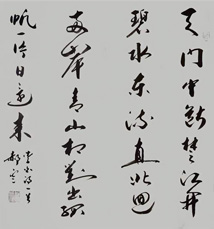 天门中断楚江开
碧水东流直北回
两岸青山相对出孤
帆一片日边来